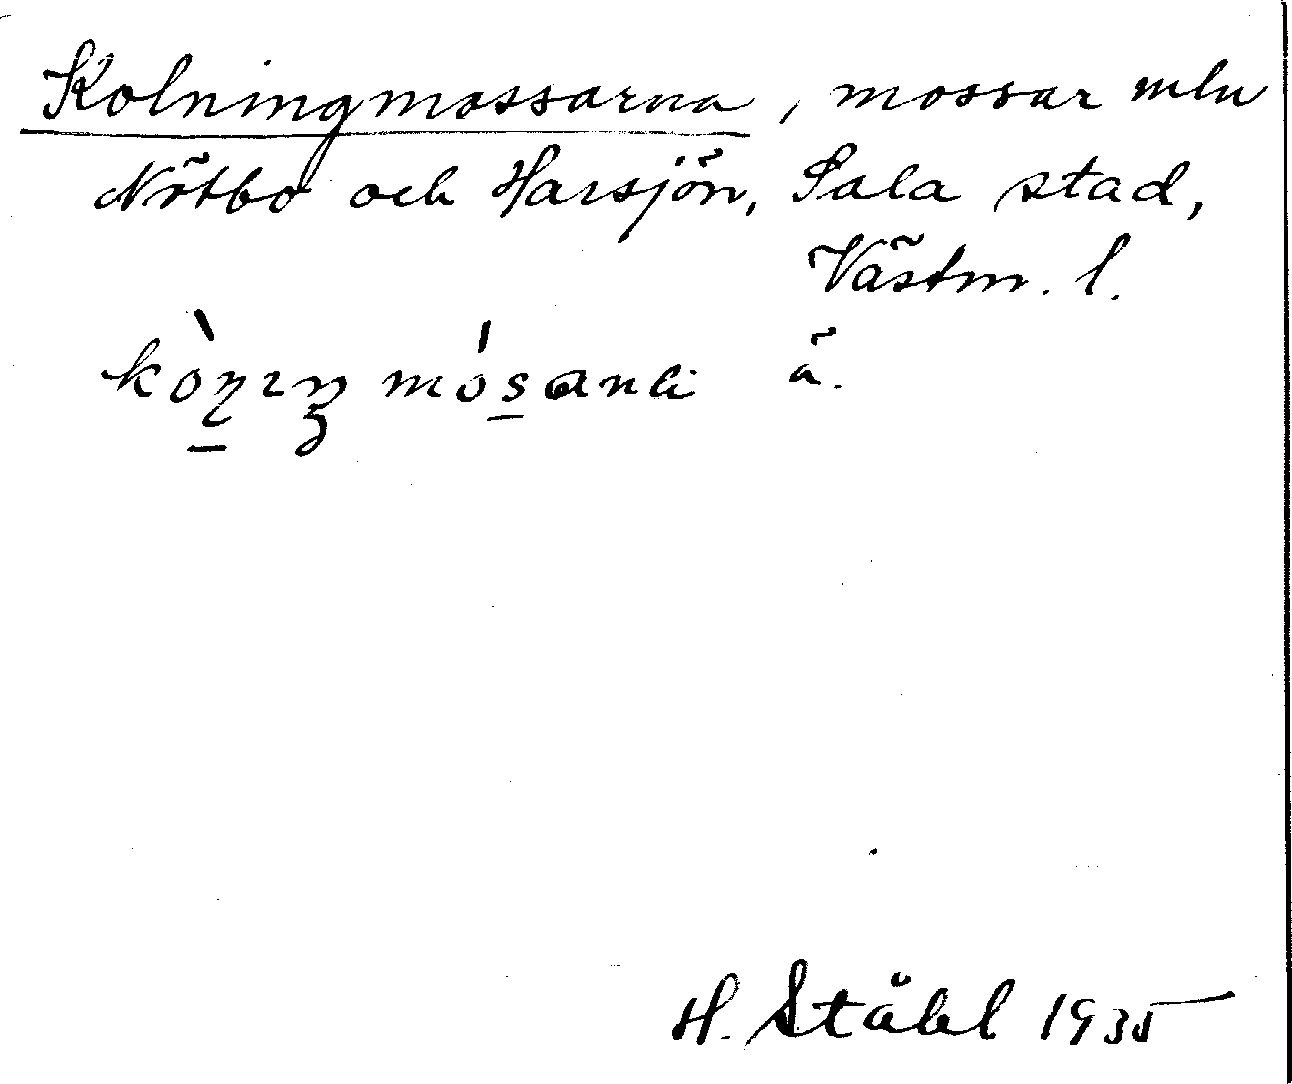 Kolningmossarna, mossar mln
Nötbo och Harsjön, Sala stad,
Västm. l.
ä.
H. Ståhl 1935